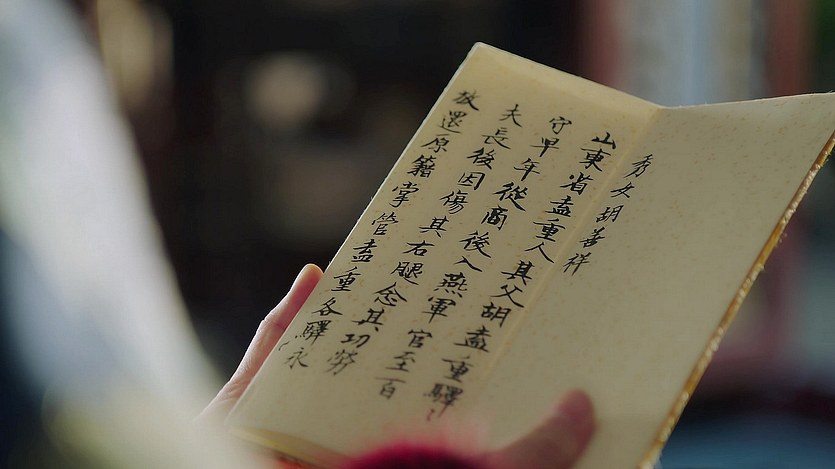 秀女胡善祥
山東省盍重人其父胡盍重驛丶
守早年從商後入燕軍官至百
夫長後因傷其右腿念其功勞
放還原籍掌管盍重各驛丶永